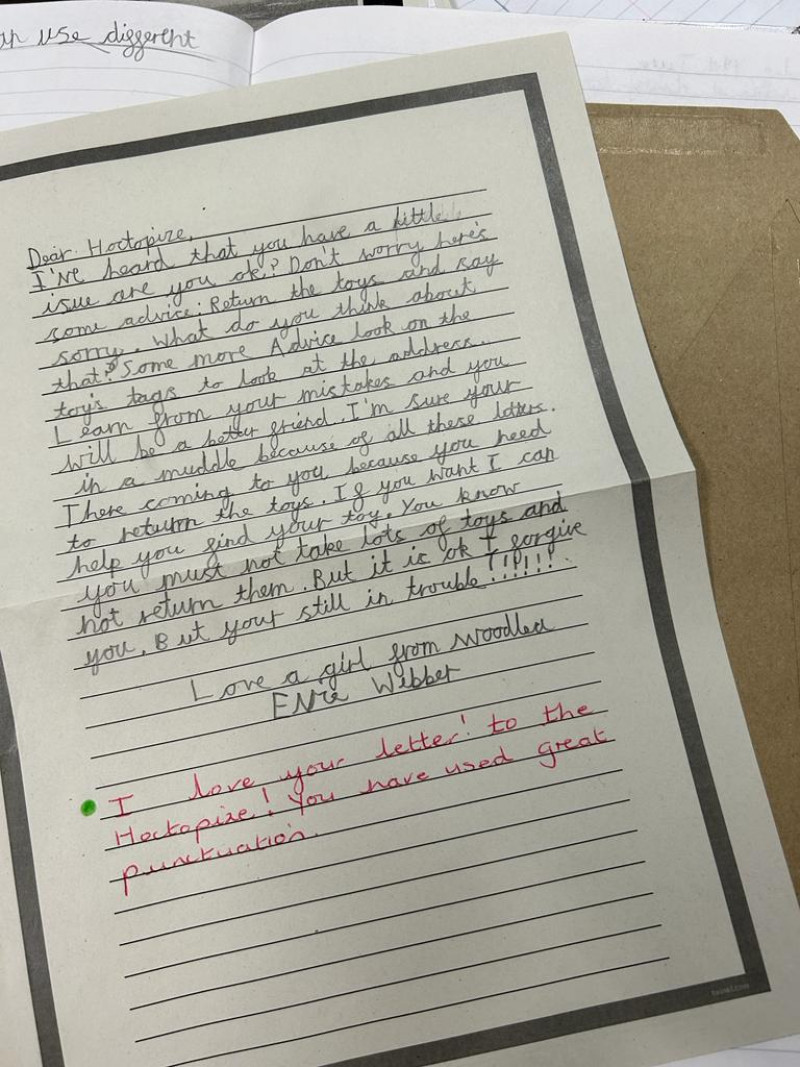 an use different
Dear Hoctopize,
I've heard that you have a little
isue are you ok? Don't worry here's
some advice: Return the toys and say
sorry. What do you think about
that? Some more Advice look on the
toy's tags to look at the address.
Learn from your mistakes and you
will be a better friend. I'm sure your
in a muddle because of all these letters.
There coming to you because you need
to return the toys. If you want I can
help you find your toy. You know
you must not take lots of toys and
not return them. But it is ok I forgive
you. But your still in trouble!!!!!!
Love a girl from Woodlea
Webber
I love your letter! to the
Hoctopize! You have used great
punctuation.
twinkl.com